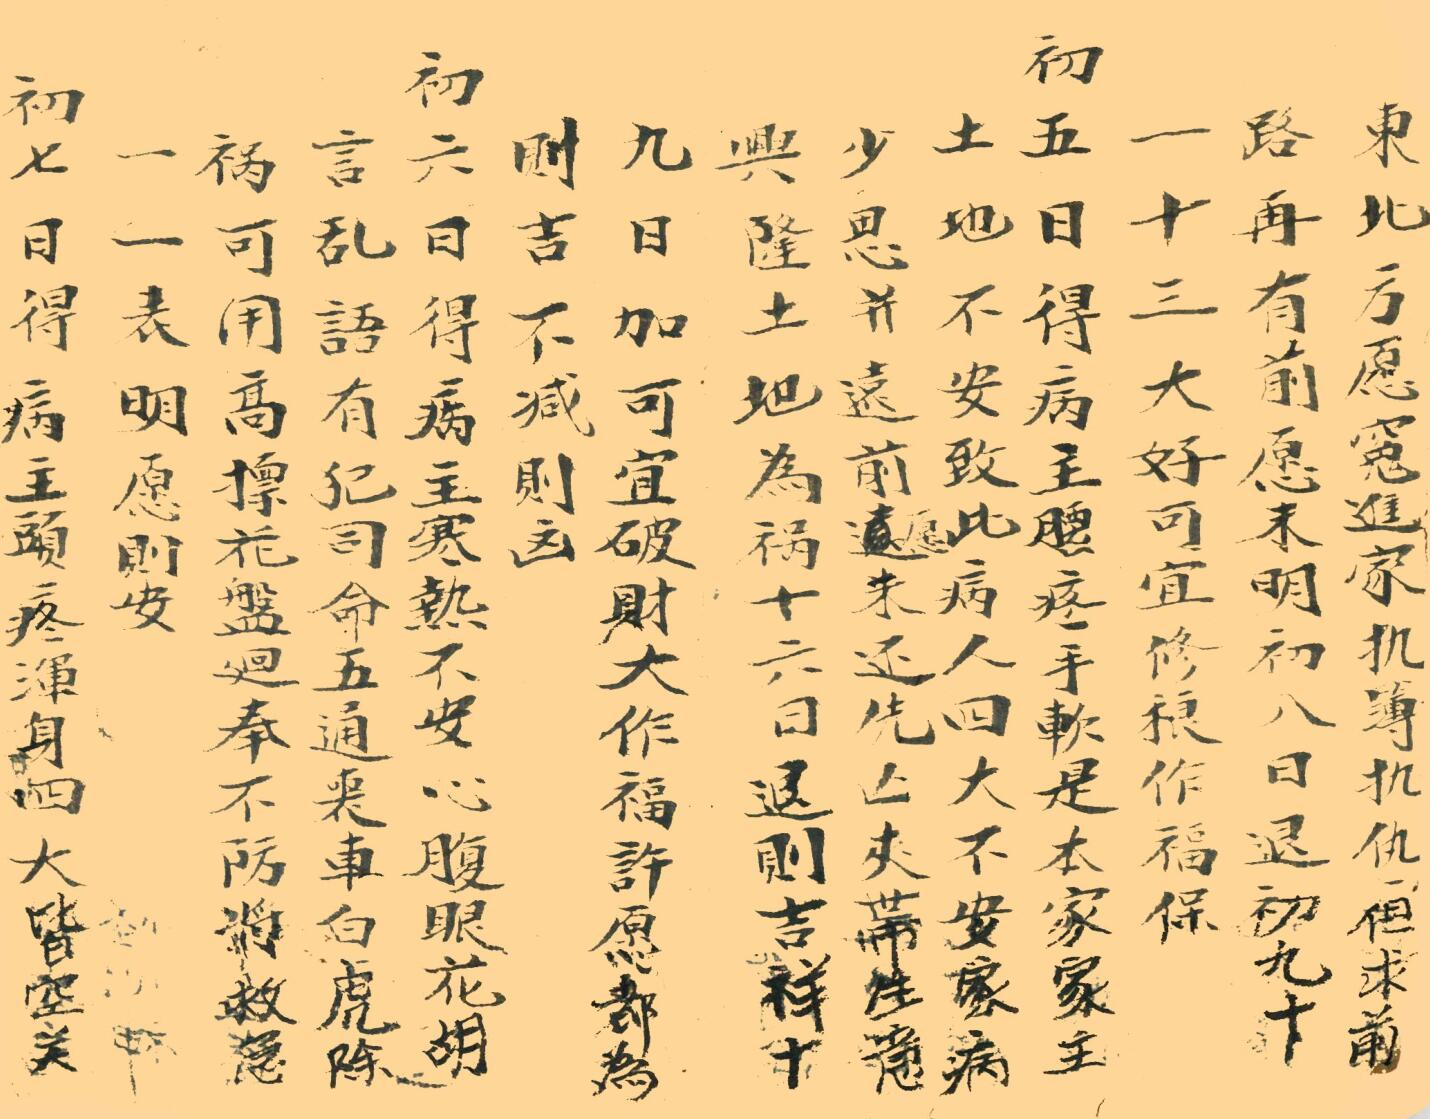 東北方愿冤進家执簿执仇但求前
路再有前愿未明初八日退初九十
一十三大好可宜修禳作福保
初五日得病主腰疼手軟是本家家主
土地不安致此病人四大不安家病
少恩并遠前遠愿未还先亡夾帶生
興隆土地為祸十六日退則吉祥十
九日加可宜破財大作福許愿都為
则吉不减則凶
初六日得病主寒熱不安心腹眼花胡
言乱語有犯司命五通喪車白虎除
祸可用高標花盤廻奉不防將救
一一表明愿則安
初七日得病主頭疼渾身四大皆空关